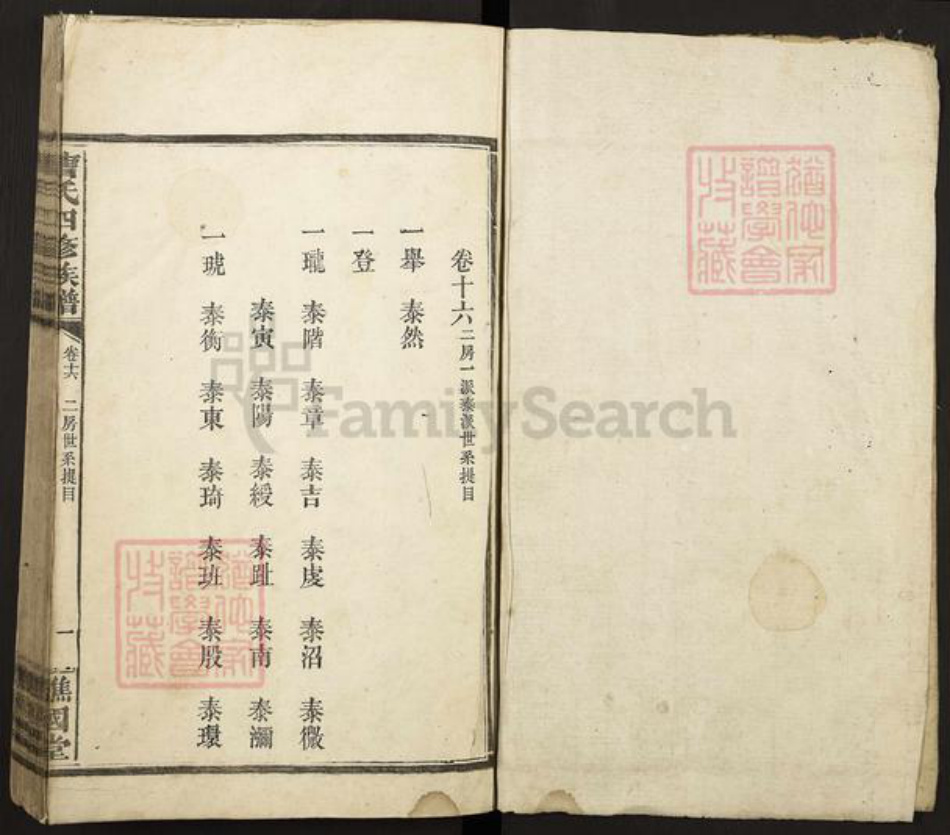 卷十六 二房一派泰派世系提目
一舉 泰然
一登
一瓏 泰階 泰章 泰吉 泰虔 泰沼 泰微
泰寅 泰陽 泰綬 泰趾 泰南 泰瀰
一琥 泰衡 泰東 泰琦 泰班 泰殷 泰瓊
曹氏四修族譜 卷十六 二房世系提目 一 譙國堂
譜學會
收藏
FamilySearch